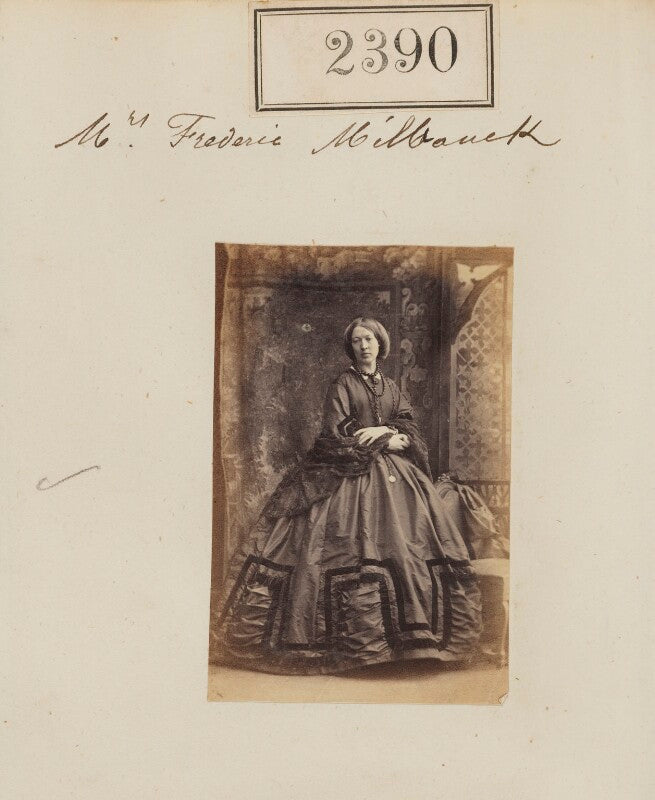 2390
Mrs. Frederic Milbanck